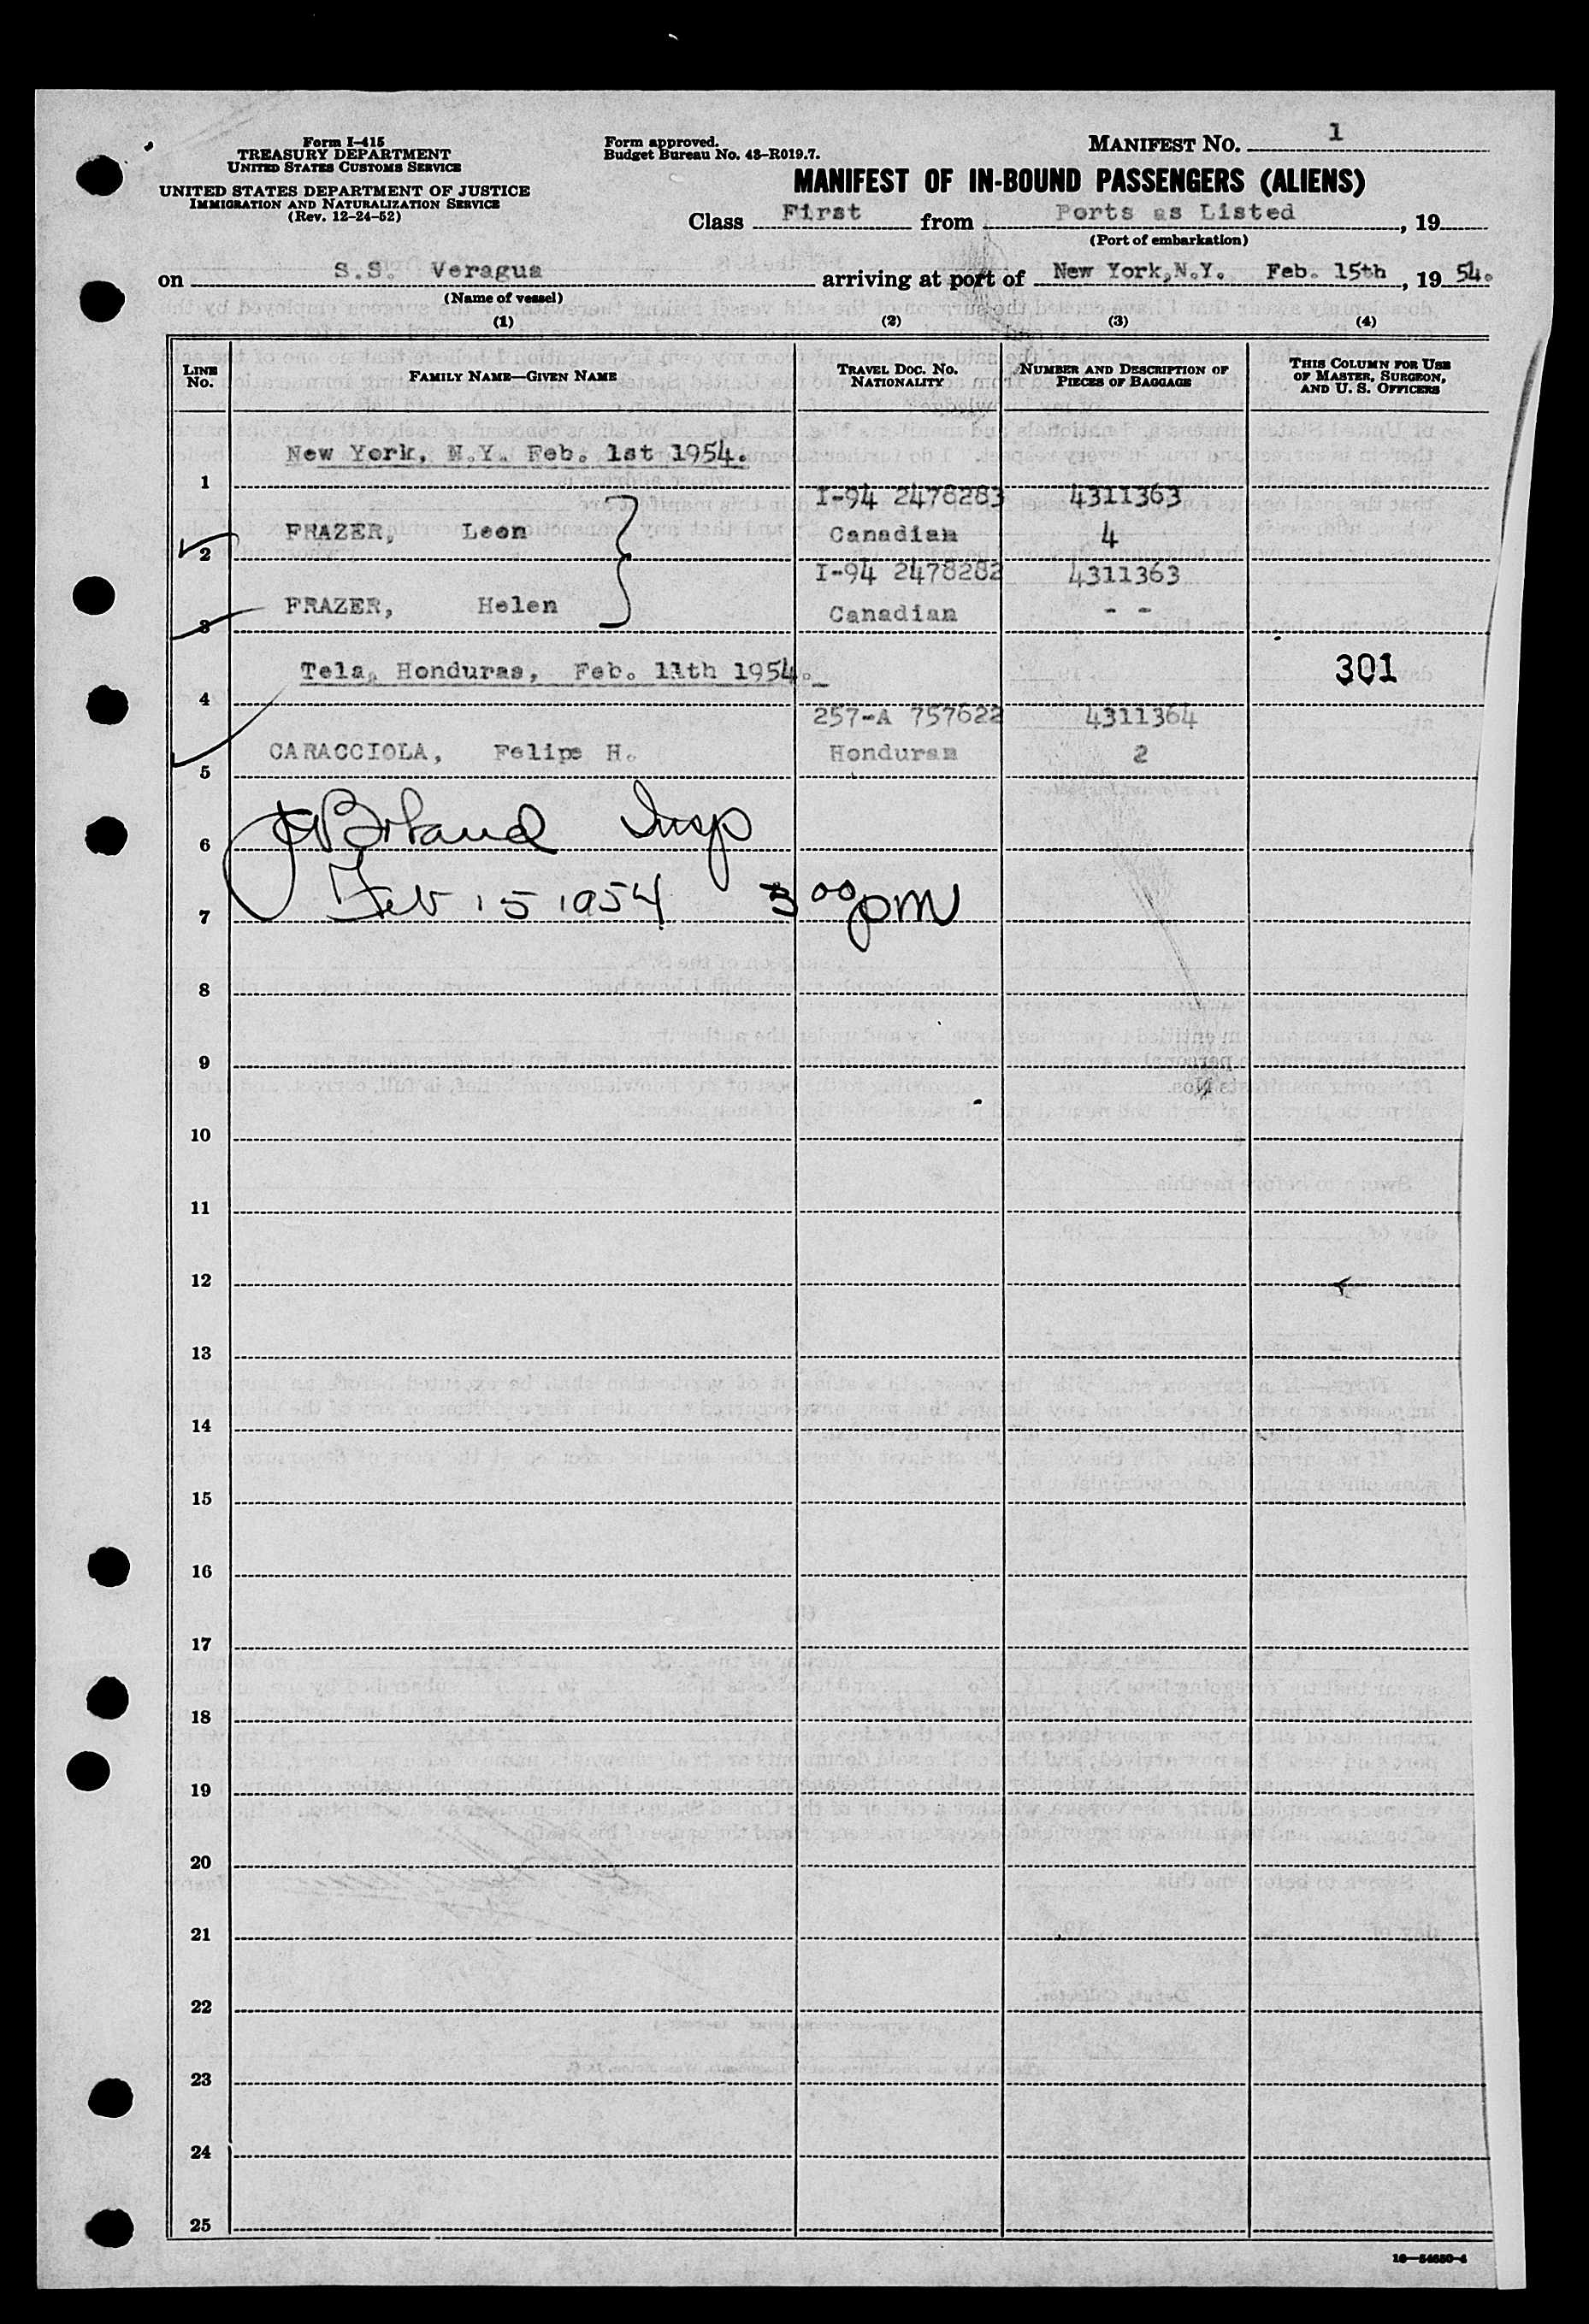 Form I-415
TREASURY DEPARTMENT
UNITED STATES CUSTOMS SERVICE
UNITED STATES DEPARTMENT OF JUSTICE
IMMIGRATION AND NATURALIZATION SERVICE
(Rev. 12-24-52)
Form approved.
Budget Bureau No. 43-R019.7.
MANIFEST NO. 1
MANIFEST OF IN-BOUND PASSENGERS (ALIENS)
Class First from Ports as Listed, 19
(Port of embarkation)
on S.S. Veragua arriving at port of New York, N.Y. Feb. 15th, 19 54.
(Name of vessel)
(1) (2) (3) (4)
LINE NO. FAMILY NAME—GIVEN NAME TRAVEL DOC. NO. NATIONALITY NUMBER AND DESCRIPTION OF PIECES OF BAGGAGE THIS COLUMN FOR USE OF MASTER, SURGEON, AND U. S. OFFICERS
New York, N.Y. Feb. 1st 1954.
1
I-94 2478283 4311363
FRAZER, Leon Canadian 4
2
I-94 2478282 4311363
FRAZER, Helen Canadian - -
3
Tela, Honduras, Feb. 11th 1954. 301
4
257-A 757622 4311364
CARACCIOLA, Felipe H. Honduran 2
5
Insp
6
Feb 15 1954 3 00 pm
7
8
9
10
11
12
13
14
15
16
17
18
19
20
21
22
23
24
25
16—54650-4